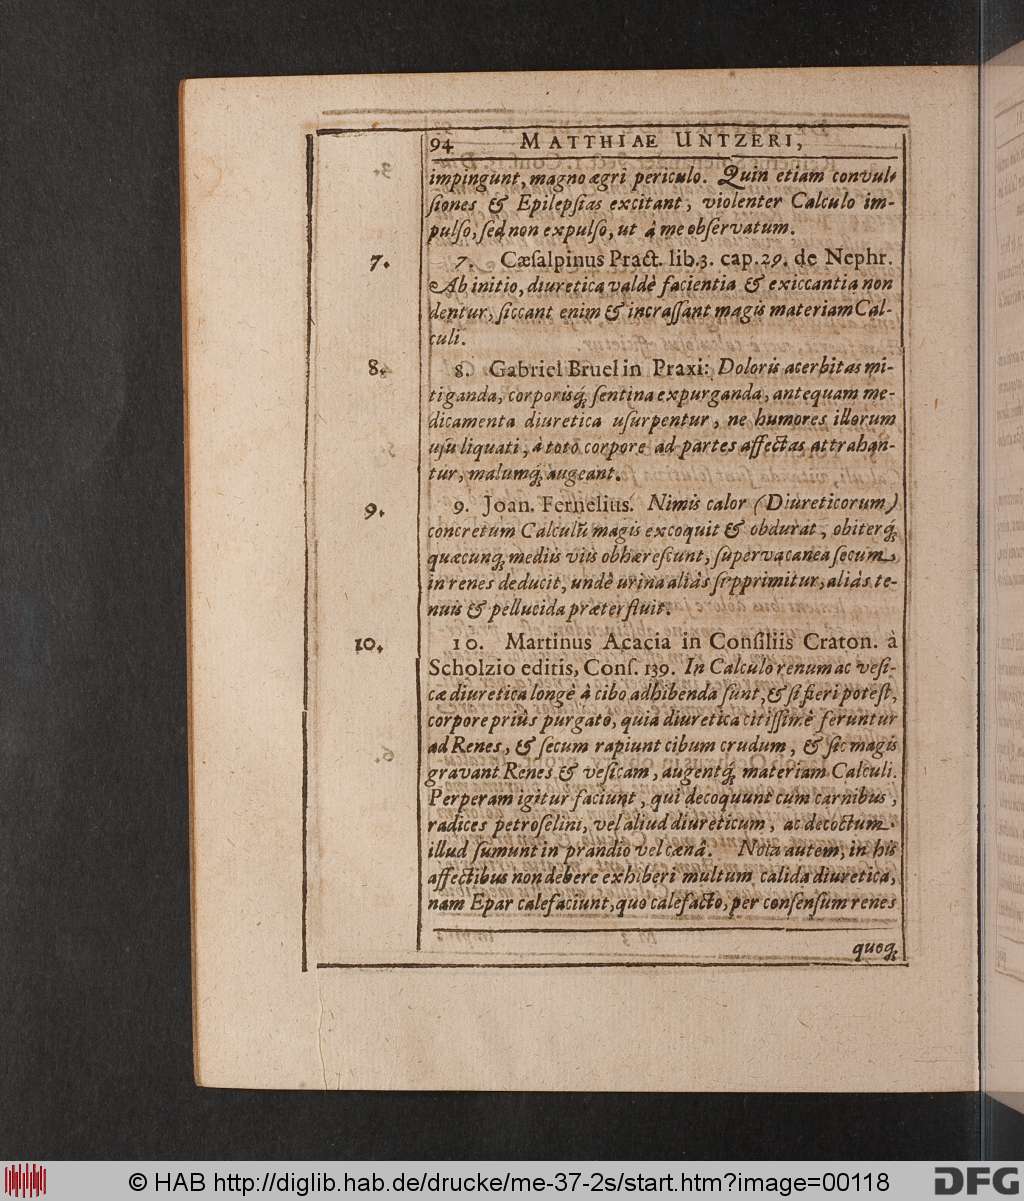 94 MATTHIAE UNTZERI,
impingunt, magno ægri periculo. Quin etiam convul-
siones & Epilepsias excitant, violenter Calculo im-
pulso, sed non expulso, ut à me observatum.
7. 7. Cæsalpinus Pract. lib.3. cap.29. de Nephr.
Ab initio, diuretica valdè facientia & exiccantia non
dentur, siccant enim & incrassant magis materiam Cal-
culi.
8. 8. Gabriel Bruel in Praxi: Doloris acerbitas mi-
tiganda, corporisq́; sentina expurganda, antequam me-
dicamenta diuretica usurpentur, ne humores illorum
usu liquati, à toto corpore ad partes affectas attrahan-
tur, malumq́; augeant.
9. 9. Joan. Fernelius. Nimis calor (Diureticorum)
concretum Calculũ magis excoquit & obdurat, obiterq́;
quæcunq; mediis viis obhærescunt, supervacanea secum
in renes deducit, undè urina aliàs supprimitur, aliàs te-
nuis & pellucida præterfluit.
10. 10. Martinus Acacia in Consiliis Craton. à
Scholzio editis, Cons. 139. In Calculo renum ac vesi-
cæ diuretica longè à cibo adhibenda sunt, & si fieri potest,
corpore priùs purgato, quia diuretica citissimè feruntur
ad Renes, & secum rapiunt cibum crudum, & sic magis
gravant Renes & vesicam, augentq́; materiam Calculi.
Perperam igitur faciunt, qui decoquunt cum carnibus,
radices petroselini, vel aliud diureticum, ac decoctum
illud sumunt in prandio vel cænâ. Nota autem, in his
affectibus non debere exhiberi multum calida diuretica,
nam Epar calefaciunt, quo calefacto, per consensum renes
quoq;
© HAB http://diglib.hab.de/drucke/me-37-2s/start.htm?image=00118
DFG